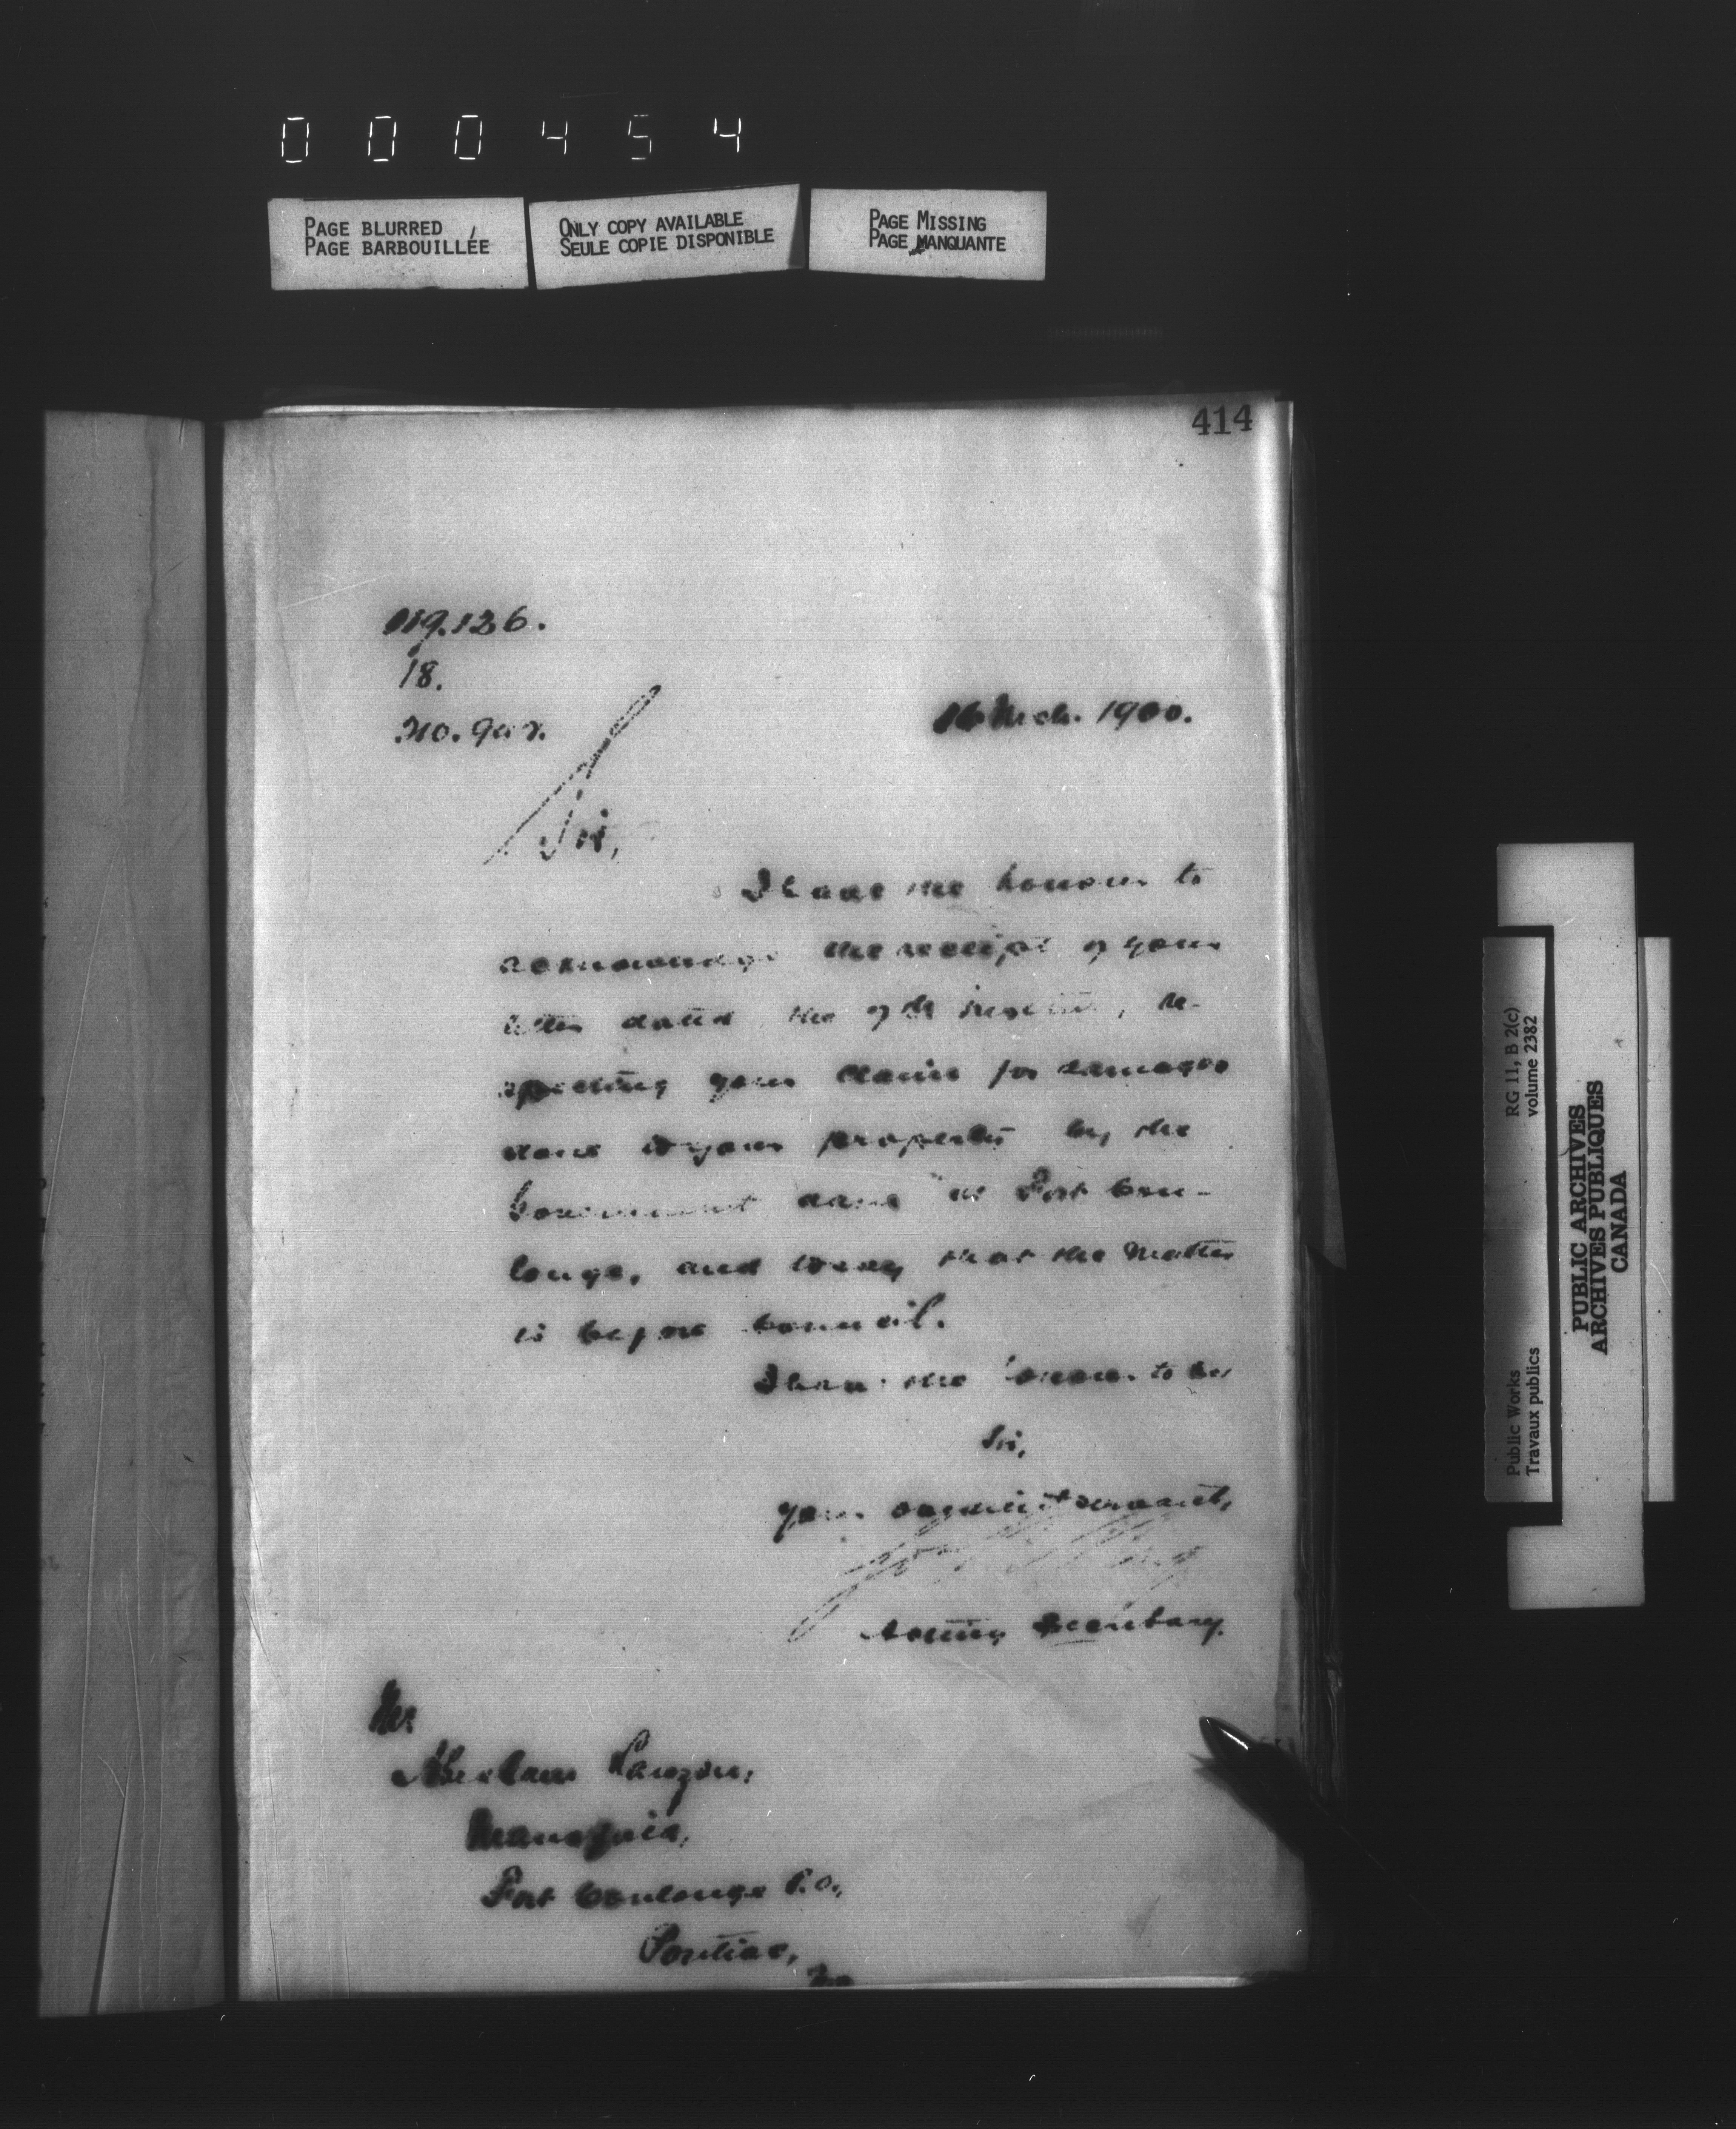 000454
PAGE BLURRED
PAGE BARBOUILLÉE
ONLY COPY AVAILABLE
SEULE COPIE DISPONIBLE
PAGE MISSING
PAGE MANQUANTE
414
18.
16 Mch. 1900.
Sir,
I have the honour to
acknowledge the receipt of your
letter dated the 9th instant, re-
specting your claim for damages
done to your property by the
Government dam at Fort Cou-
longe, and to say that the matter
is before Council.
I have the honour to be,
Sir,
Your obedient servant,
Acting Secretary.
Mr.
Lauzon,
Fort Coulonge P.O.,
Pontiac,
RG 11, B 2(c)
volume 2382
Public Works
Travaux publics
PUBLIC ARCHIVES
ARCHIVES PUBLIQUES
CANADA